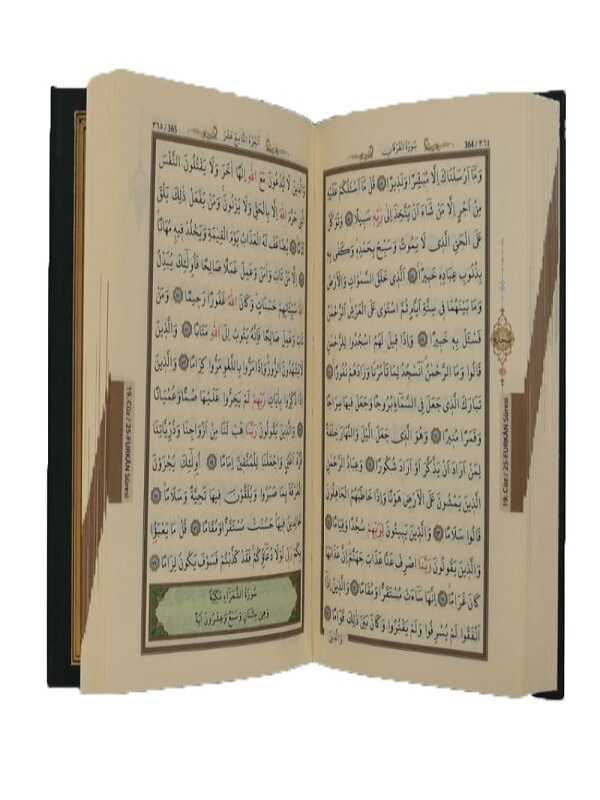 364 / ٣٦٤
سُورَةُ الْفُرْقَانِ
وَمَٓا اَرْسَلْنَاكَ اِلَّا مُبَشِّرًا وَنَذ۪يرًا ٥٦ قُلْ مَٓا اَسْـَٔلُكُمْ عَلَيْهِ
مِنْ اَجْرٍ اِلَّا مَنْ شَٓاءَ اَنْ يَتَّخِذَ اِلٰى رَبِّه۪ سَب۪يلًا ٥٧ وَتَوَكَّلْ
عَلَى الْحَيِّ الَّذ۪ي لَا يَمُوتُ وَسَبِّحْ بِحَمْدِه۪ وَكَفٰى بِه۪
بِذُنُوبِ عِبَادِه۪ خَب۪يرًا ٥٨ اَلَّذ۪ي خَلَقَ السَّمٰوَاتِ وَالْاَرْضَ
وَمَا بَيْنَهُمَا ف۪ي سِتَّةِ اَيَّامٍ ثُمَّ اسْتَوٰى عَلَى الْعَرْشِ اَلرَّحْمٰنُ
فَسْـَٔلْ بِه۪ خَب۪يرًا ٥٩ وَاِذَا ق۪يلَ لَهُمُ اسْجُدُوا لِلرَّحْمٰنِ
قَالُوا وَمَا الرَّحْمٰنُ اَنَسْجُدُ لِمَا تَأْمُرُنَا وَزَادَهُمْ نُفُورًا ٦٠
تَبَارَكَ الَّذ۪ي جَعَلَ فِي السَّمَٓاءِ بُرُوجًا وَجَعَلَ ف۪يهَا سِرَاجًا
وَقَمَرًا مُن۪يرًا ٦١ وَهُوَ الَّذ۪ي جَعَلَ الَّيْلَ وَالنَّهَارَ خِلْفَةً
لِمَنْ اَرَادَ اَنْ يَذَّكَّرَ اَوْ اَرَادَ شُكُورًا ٦٢ وَعِبَادُ الرَّحْمٰنِ
الَّذ۪ينَ يَمْشُونَ عَلَى الْاَرْضِ هَوْنًا وَاِذَا خَاطَبَهُمُ الْجَاهِلُونَ
قَالُوا سَلَامًا ٦٣ وَالَّذ۪ينَ يَب۪يتُونَ لِرَبِّهِمْ سُجَّدًا وَقِيَامًا ٦٤
وَالَّذ۪ينَ يَقُولُونَ رَبَّنَا اصْرِفْ عَنَّا عَذَابَ جَهَنَّمَ اِنَّ عَذَابَهَا
كَانَ غَرَامًا ٦٥ اِنَّهَا سَٓاءَتْ مُسْتَقَرًّا وَمُقَامًا ٦٦ وَالَّذ۪ينَ اِذَٓا
اَنْفَقُوا لَمْ يُسْرِفُوا وَلَمْ يَقْتُرُوا وَكَانَ بَيْنَ ذٰلِكَ قَوَامًا ٦٧
وَالَّذ۪ينَ
19. Cüz / 25-FURKÂN Sûresi
اَلْجُزْءُ التَّاسِعُ عَشَرَ
٣٦٥ / 365
وَالَّذ۪ينَ لَا يَدْعُونَ مَعَ اللّٰهِ اِلٰهًا اٰخَرَ وَلَا يَقْتُلُونَ النَّفْسَ
الَّت۪ي حَرَّمَ اللّٰهُ اِلَّا بِالْحَقِّ وَلَا يَزْنُونَ وَمَنْ يَفْعَلْ ذٰلِكَ يَلْقَ
اَثَامًا ٦٨ يُضَاعَفْ لَهُ الْعَذَابُ يَوْمَ الْقِيٰمَةِ وَيَخْلُدْ ف۪يه۪ مُهَانًا
٦٩ اِلَّا مَنْ تَابَ وَاٰمَنَ وَعَمِلَ عَمَلًا صَالِحًا فَاُو۬لٰٓئِكَ يُبَدِّلُ
اللّٰهُ سَيِّـَٔاتِهِمْ حَسَنَاتٍ وَكَانَ اللّٰهُ غَفُورًا رَح۪يمًا ٧٠ وَمَنْ
تَابَ وَعَمِلَ صَالِحًا فَاِنَّهُ يَتُوبُ اِلَى اللّٰهِ مَتَابًا ٧١ وَالَّذ۪ينَ
لَا يَشْهَدُونَ الزُّورَ وَاِذَا مَرُّوا بِاللَّغْوِ مَرُّوا كِرَامًا ٧٢ وَالَّذ۪ينَ
اِذَا ذُكِّرُوا بِاٰيَاتِ رَبِّهِمْ لَمْ يَخِرُّوا عَلَيْهَا صُمًّا وَعُمْيَانًا
٧٣ وَالَّذ۪ينَ يَقُولُونَ رَبَّنَا هَبْ لَنَا مِنْ اَزْوَاجِنَا وَذُرِّيَّاتِنَا
قُرَّةَ اَعْيُنٍ وَاجْعَلْنَا لِلْمُتَّق۪ينَ اِمَامًا ٧٤ اُو۬لٰٓئِكَ يُجْزَوْنَ
الْغُرْفَةَ بِمَا صَبَرُوا وَيُلَقَّوْنَ ف۪يهَا تَحِيَّةً وَسَلَامًا ٧٥
خَالِد۪ينَ ف۪يهَا حَسُنَتْ مُسْتَقَرًّا وَمُقَامًا ٧٦ قُلْ مَا يَعْبَؤُ۬ا
بِكُمْ رَبّ۪ي لَوْلَا دُعَٓاؤُ۬كُمْ فَقَدْ كَذَّبْتُمْ فَسَوْفَ يَكُونُ لِزَامًا ٧٧
سُورَةُ الشُّعَرَاءِ مَكِّيَّةٌ
وَهِيَ مِائَتَانِ وَسَبْعٌ وَعِشْرُونَ اٰيَةً
19. Cüz / 25-FURKÂN Sûresi